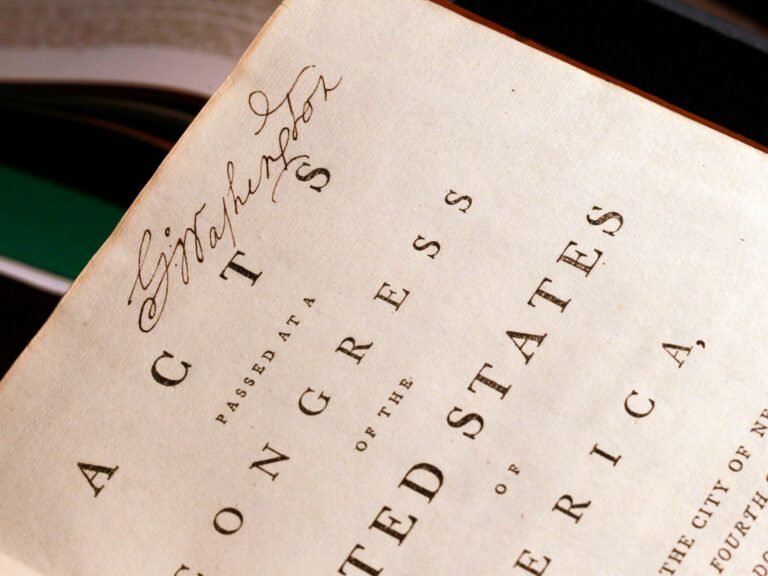 G:Washington
ACTS
PASSED AT A
CONGRESS
OF THE
TED STATES
OF
ERICA,
THE CITY OF NE
FOURTH